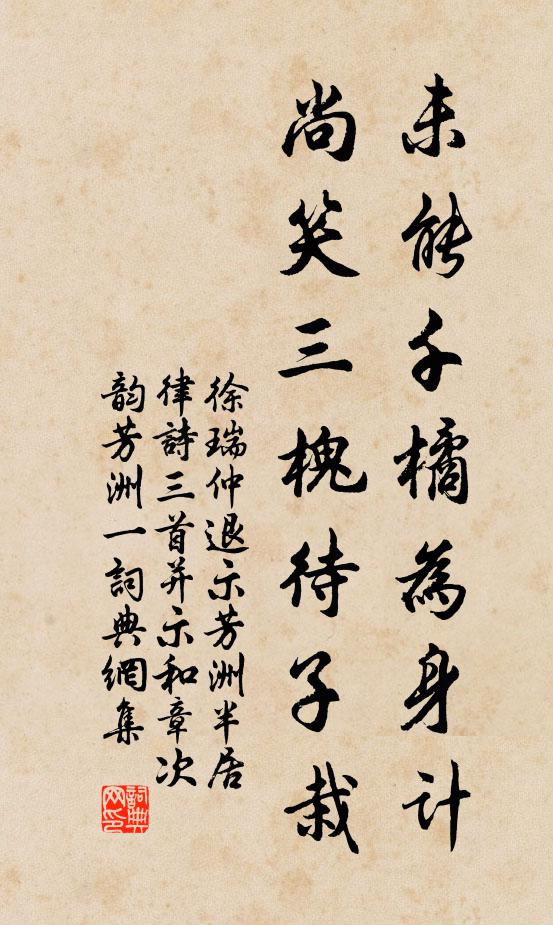 未能千橘為身計
尚笑三槐待子栽
徐瑞仲退示芳洲半居
律詩三首并示和章次
韵芳洲一詞典網集
詞典网印